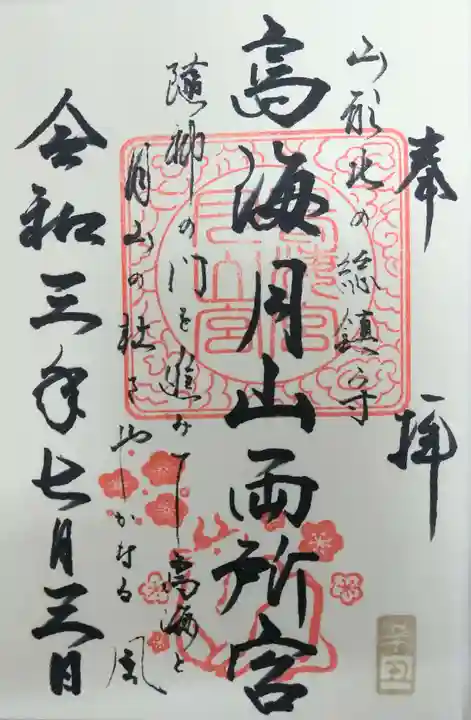 奉拝
山形北の総鎮守
高海月山両所宮
随神の門を進みて高海と
月山の杜さやかなる風
令和三年七月三日